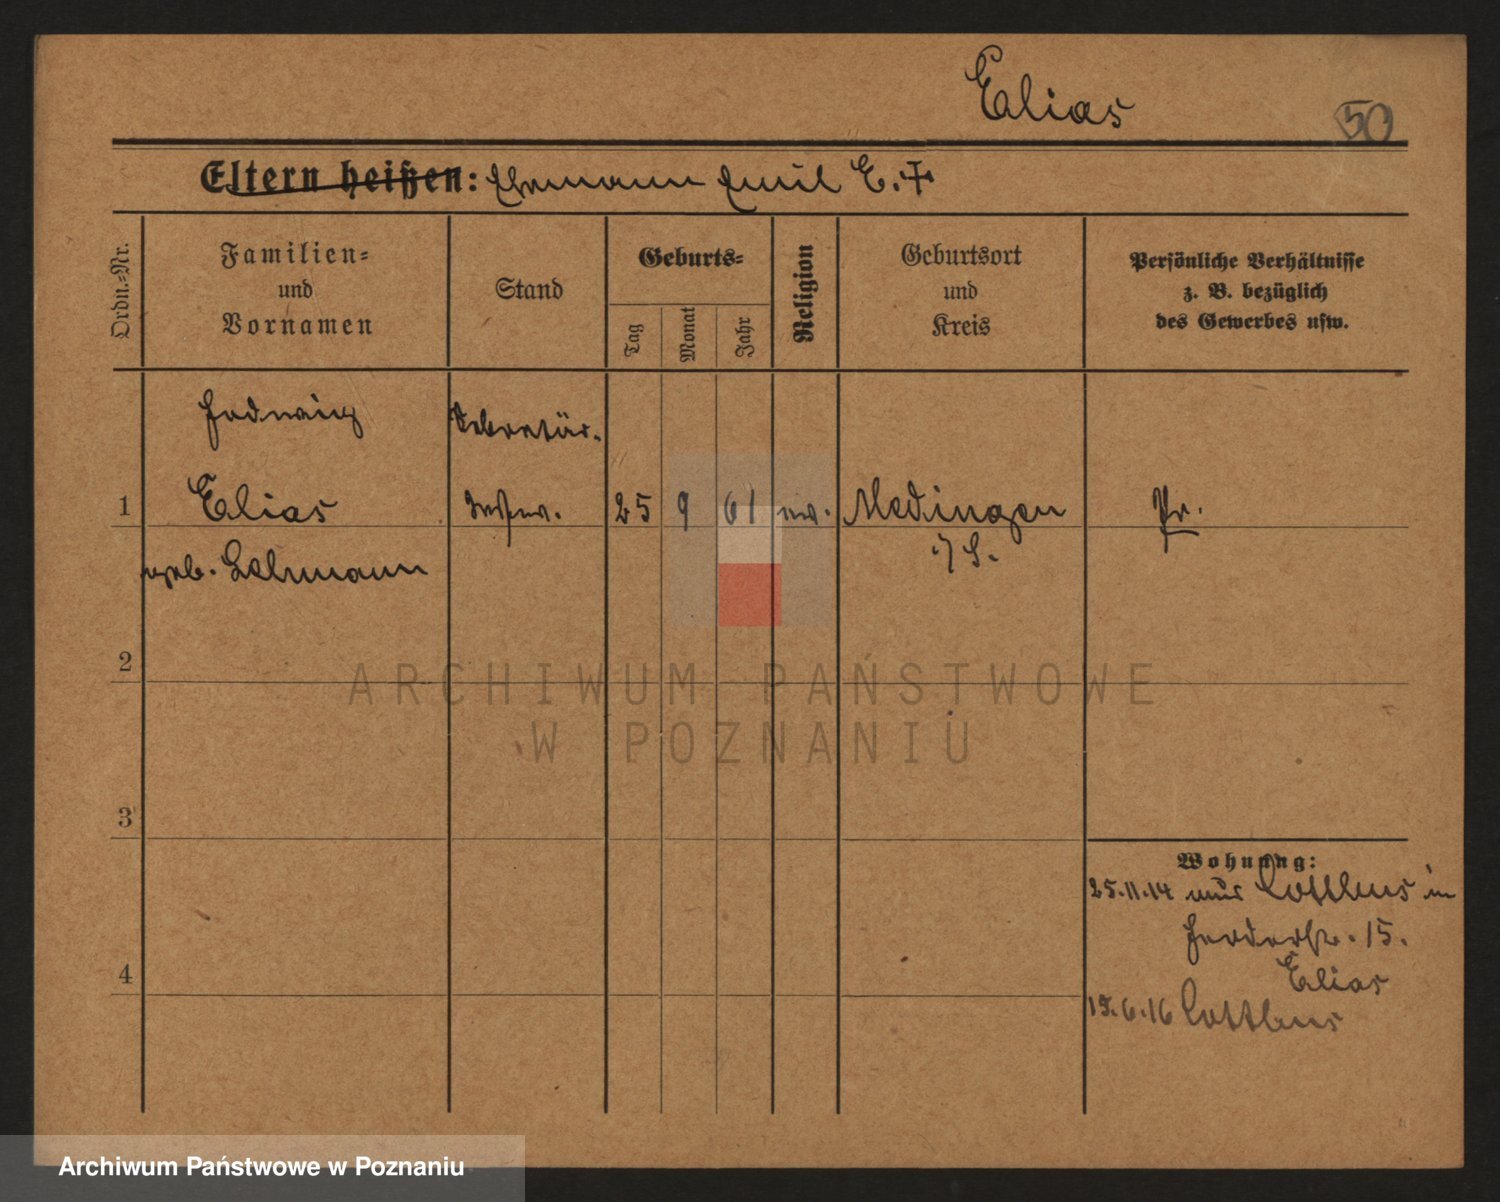 Elias
50
Eltern heißen: Ehemann Emil E. †
Ordn.-Nr.
Familien=
und
Vornamen
Stand
Geburts=
Tag
Monat
Jahr
Religion
Geburtsort
und
Kreis
Persönliche Verhältnisse
z. B. bezüglich
des Gewerbes usw.
Hedwig
Sekretär.
1 Elias 25 9 61 ev. Medingen Pr.
geb. Lehmann
2
ARCHIWUM PAŃSTWOWE
W POZNANIU
3
Wohnung:
25.11.14 aus Cottbus in
15.
4
Elias
6.16 Cottbus
Archiwum Państwowe w Poznaniu